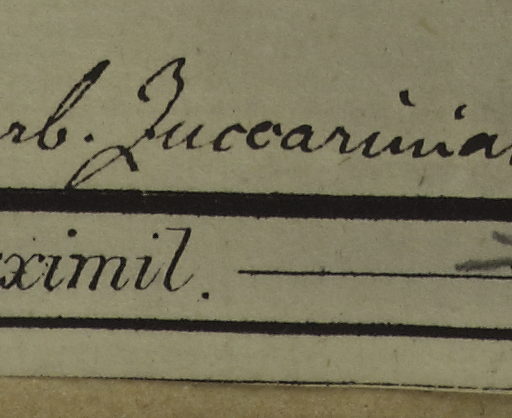 rb. Zuccarinia
ximil.